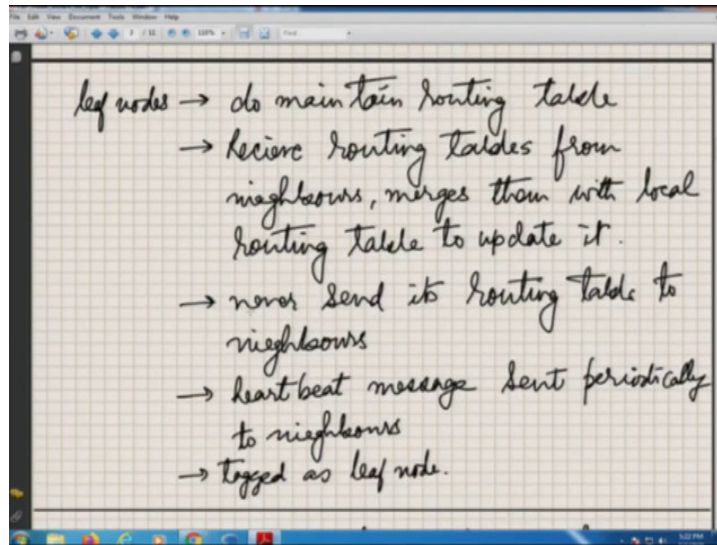 File Edit View Document Tools Window Help
3 / 11 110% Find
leaf nodes → do maintain routing table
→ Recieve routing tables from
nieghbours, merges them with local
routing table to update it.
→ never send its routing table to
nieghbours
→ heartbeat message sent periodically
to nieghbours
→ tagged as leaf node.
5:22 PM